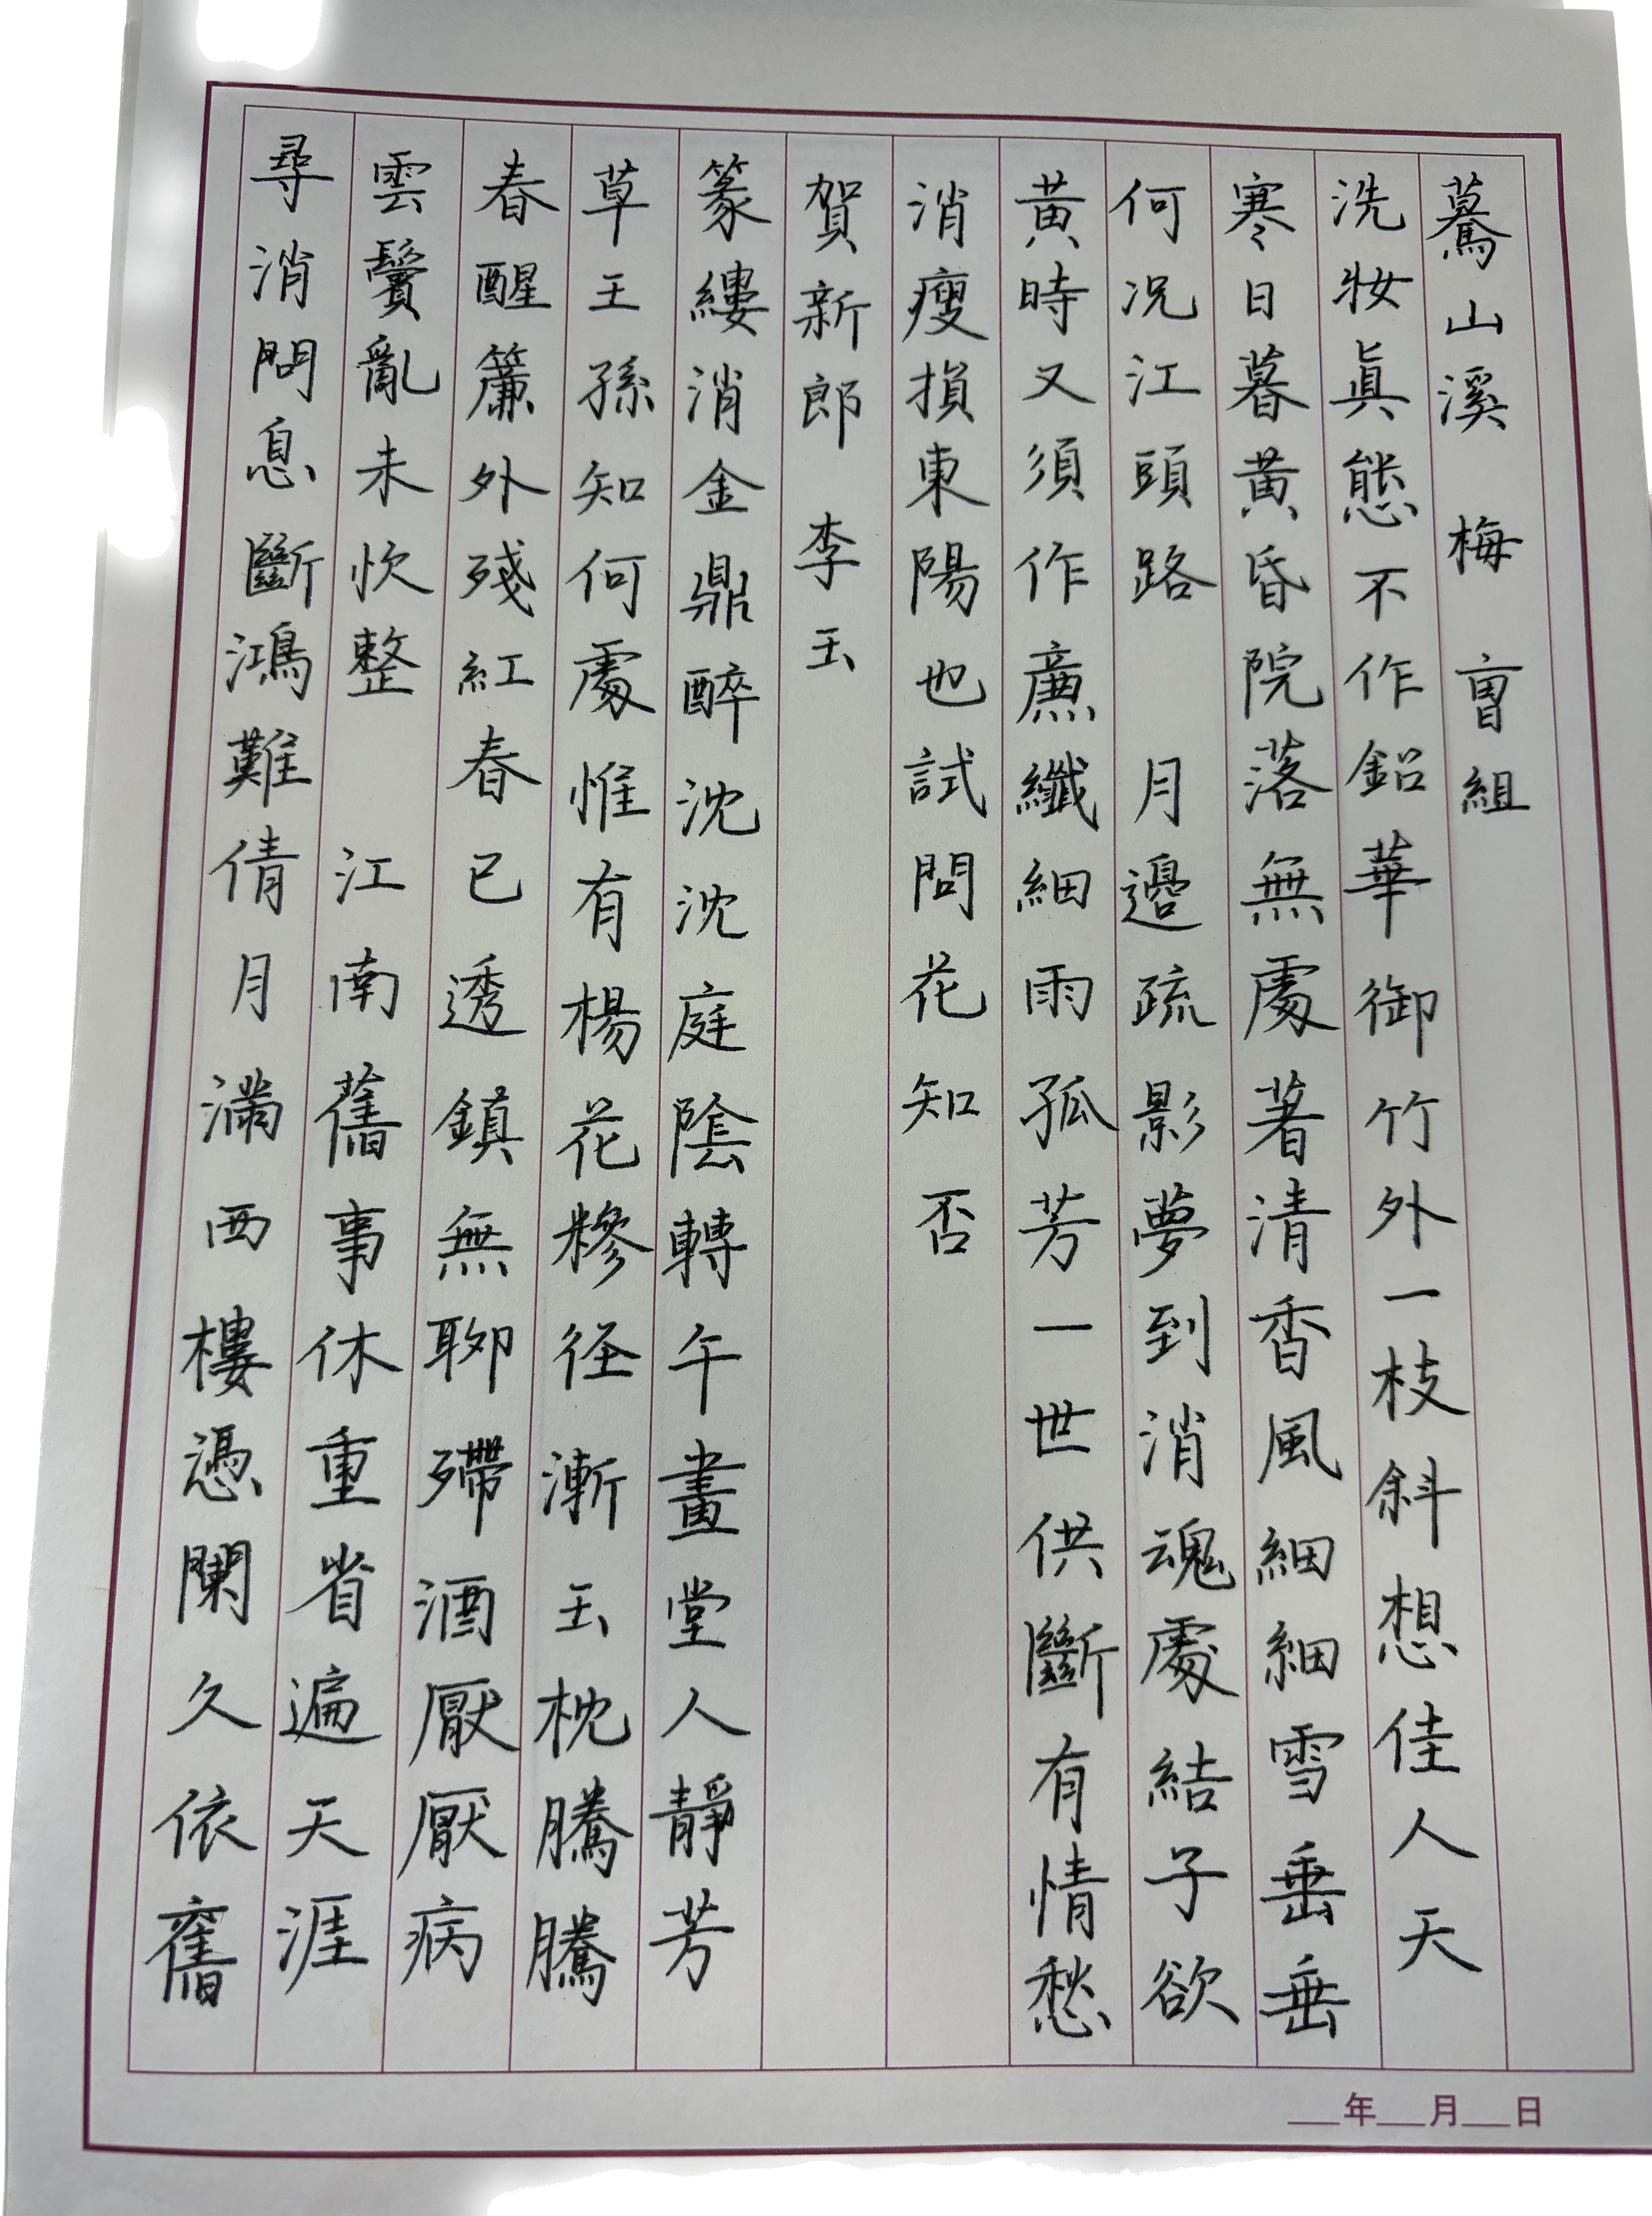 驀山溪 梅 曹組
洗妝眞態不作鉛華御竹外一枝斜想佳人天
寒日暮黃昏院落無處著清香風細細雪垂垂
何況江頭路 月邊疏影夢到消魂處結子欲
黃時又須作廉纖細雨孤芳一世供斷有情愁
消瘦損東陽也試問花知否
賀新郎 李玉
篆縷消金鼎醉沈沈庭陰轉午畫堂人靜芳
草王孫知何處惟有楊花糝徑漸玉枕騰騰
春醒簾外殘紅春已透鎮無聊殢酒厭厭病
雲鬢亂未忺整 江南舊事休重省遍天涯
尋消問息斷鴻難倩月滿西樓憑闌久依舊
___年___月___日